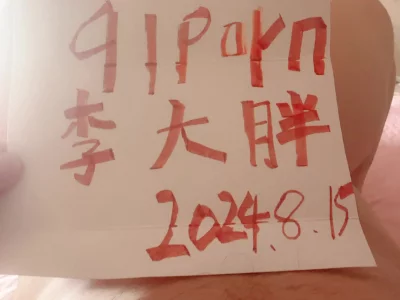 91porn
李大胖
2024.8.15